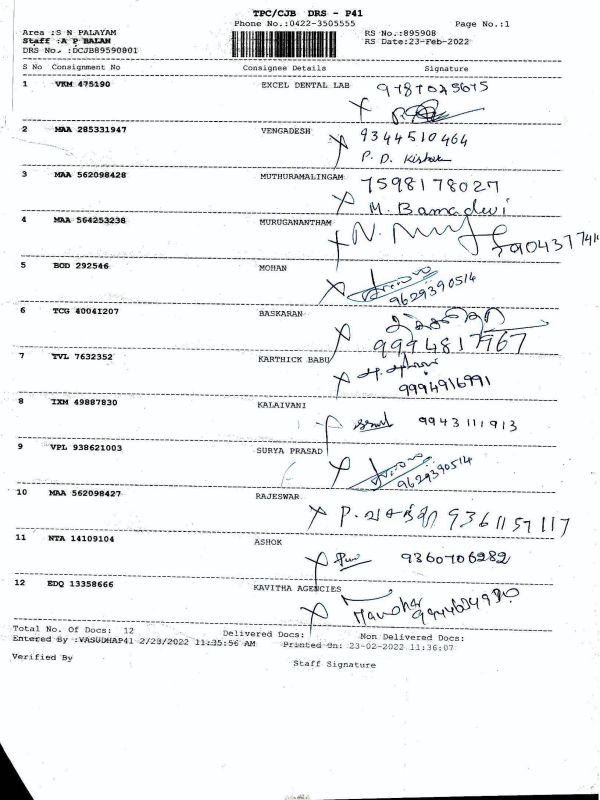 TPC/CJB DRS - P41
Phone No.:0422-3505555 Page No.:1
Area :S N PALAYAM RS No.:895908
Staff :A P BALAN RS Date:23-Feb-2022
DRS No. :DCJB89590801
S No Consignment No Consignee Details Signature
1 VKM 475190 EXCEL DENTAL LAB
2 MAA 285331947 VENGADESH 9344510464
P. D. Kishok
3 MAA 562098428 MUTHURAMALINGAM 7598178027
M. Bamadevi
4 MAA 564253238 MURUGANANTHAM
5 BOD 292546 MOHAN
9629390514
6 TCG 40041207 BASKARAN
9994817967
7 TVL 7632352 KARTHICK BABU
9994916991
8 IXM 49887830 KALAIVANI 9943111913
9 VPL 938621003 SURYA PRASAD
9629390514
10 MAA 562098427 RAJESWAR P. வசந்தி 9361157117
11 NTA 14109104 ASHOK 9360706282
12 EDQ 13358666 KAVITHA AGENCIES Manohar
Total No. Of Docs: 12 Delivered Docs: Non Delivered Docs:
Entered By :VASUDHAP41 2/23/2022 11:35:56 AM Printed On: 23-02-2022 11:36:07
Verified By Staff Signature